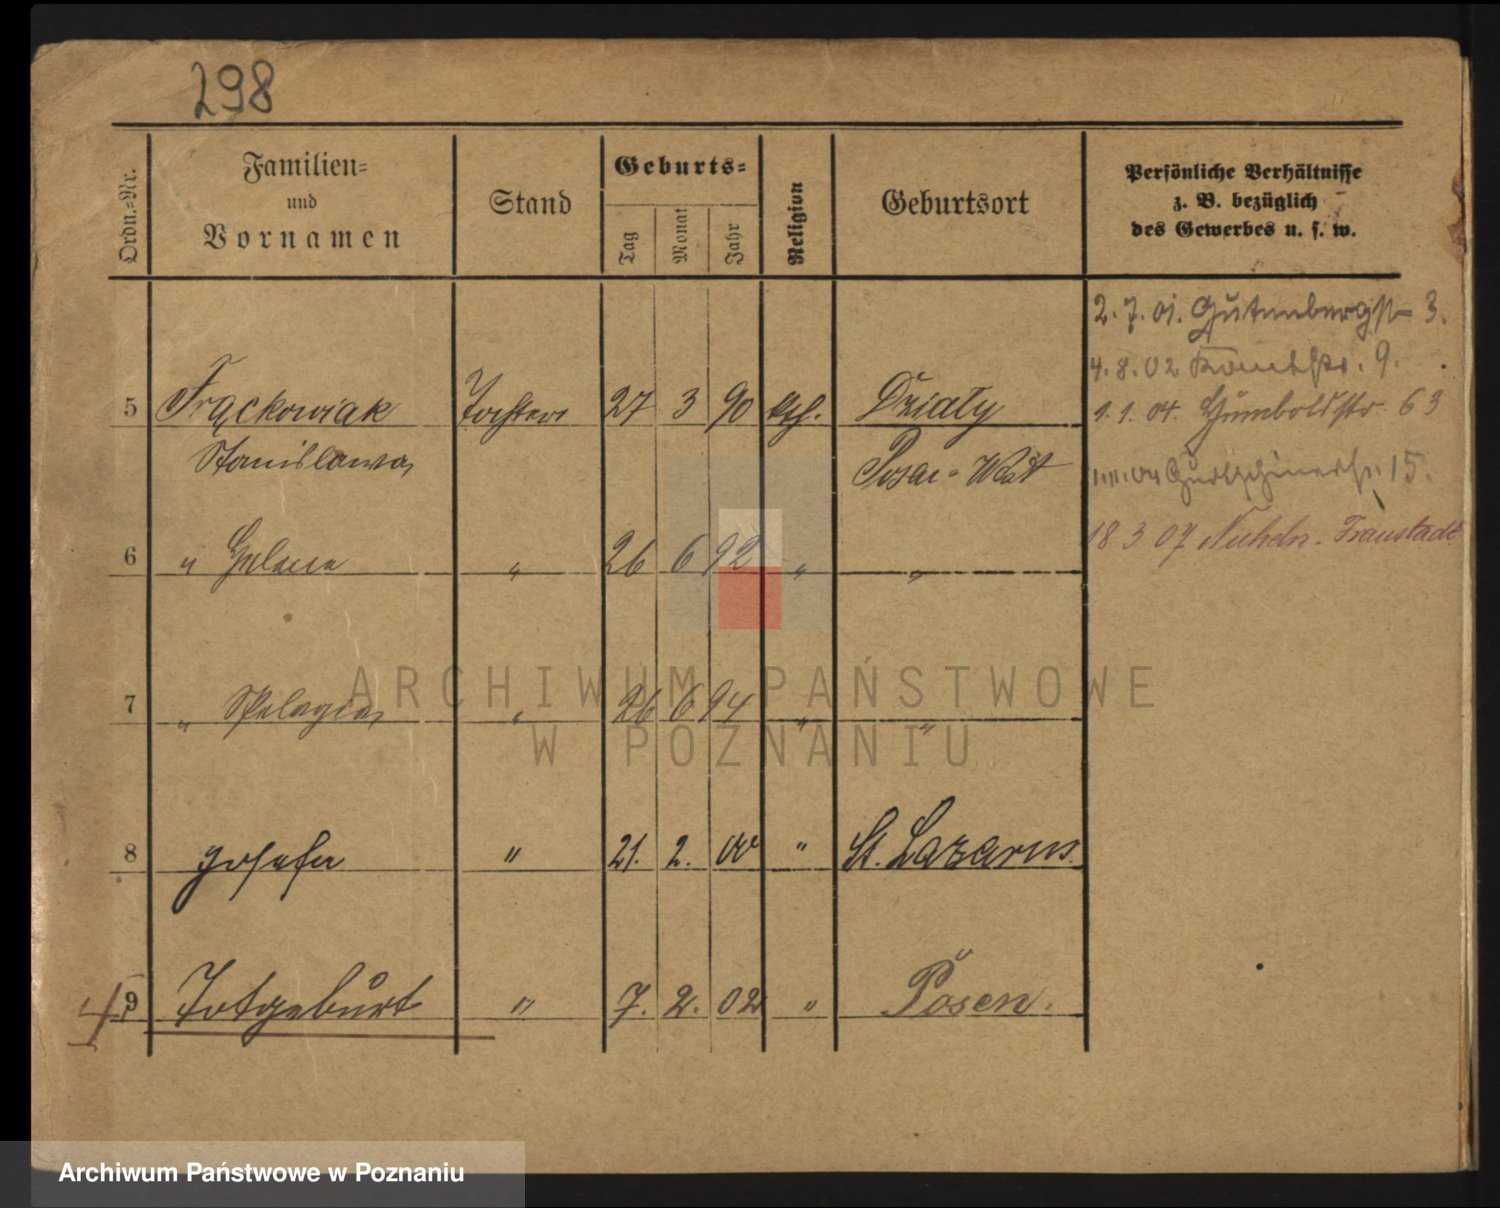 298
Ordn.-Nr.
Familien-
und
Vornamen
Stand
Geburts-
Tag
Monat
Jahr
Religion
Geburtsort
Persönliche Verhältnisse
z. B. bezüglich
des Gewerbes u. s. w.
2. 7. 01. Gutenbergstr 3.
4. 8. 02 9.
5 Frąckowiak Tochter 27 3 90 kth. Działy
1. 1. 04. Humboldstr. 63
Stanislawa Posen-West
15.
18 3 07 Fraustadt
6 " Helene " 26 6 92 " "
7 " Pelagia " 26 6 94 " "
8 Josefa " 21. 2. 00 " St. Lazarus.
9 Totgeburt " 7. 2. 02 " Posen.
ARCHIWUM PAŃSTWOWE
W POZNANIU
Archiwum Państwowe w Poznaniu